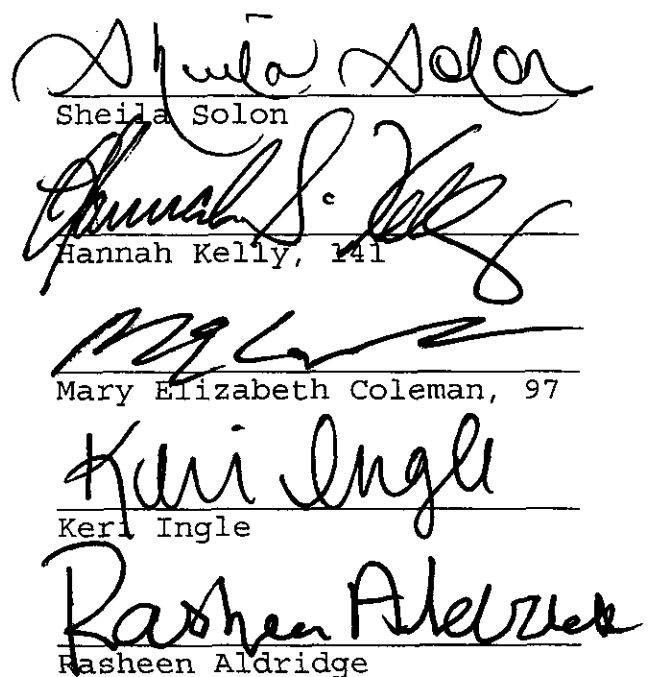 Sheila Solon
Sheila Solon
Hannah S. Kelly
Hannah Kelly, 141
Mary Elizabeth Coleman, 97
Keri Ingle
Keri Ingle
Rasheen Aldridge
Rasheen Aldridge